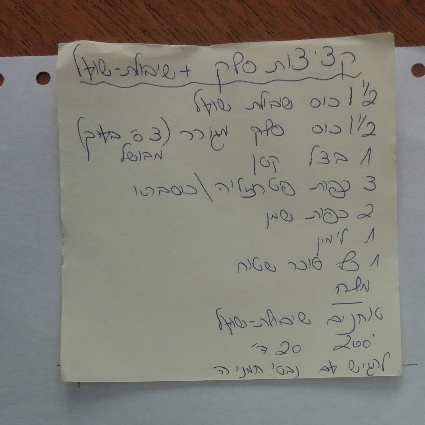 קציצות סלק + שיבולת-שועל
1 1/2 כוס שבולת שועל
1 1/2 כוס סלק מגורר (3 ס"
מבושל
1 בצל קטן
3 כפות פטרוזיליה \ כוסברה
2 כפות שמן
1 לימון
1 כף סוכר שטוח
מלח
טוחנים שיבולת-שועל
200° 20 ד'
להגיש עם נבטי חמניה